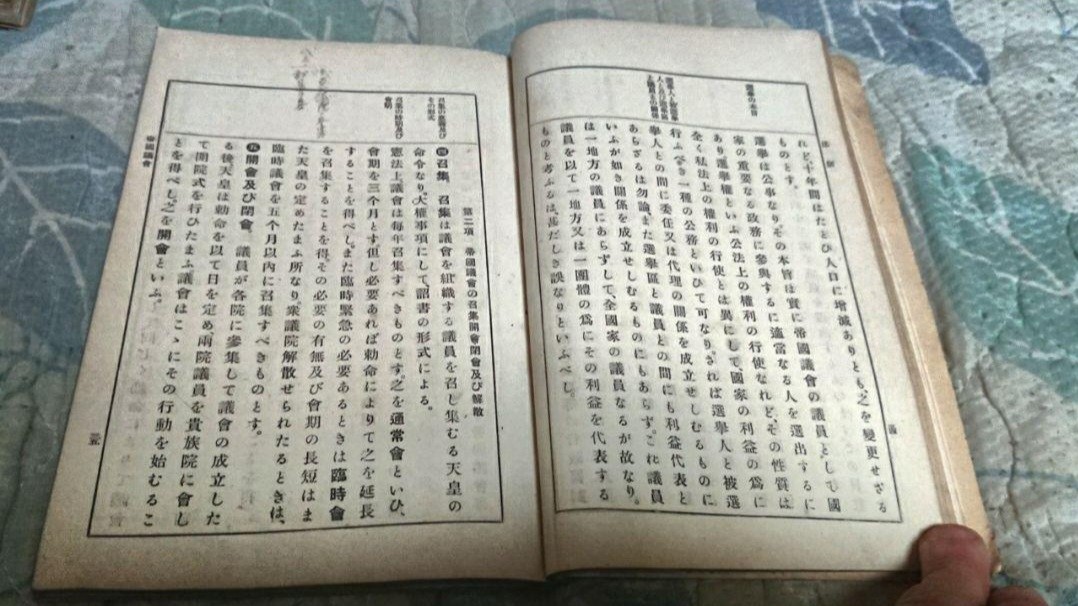 選擧の本旨
選擧人と被選擧
人と及び選擧區
と議員との關係
れど、十年間はたとひ人口に增減ありとも、之を變更せざる
ものとす。
選擧は公事なり。その本旨は實に帝國議會の議員として國
家の重要なる政務に參與するに適當なる人を選出するに
あり。選擧權といふ公法上の權利の行使なれど、その性質は
全く私法上の權利の行使とは異にして、國家の利益の爲に
行ふべき一種の公務といひて可なり。されば選擧人と被選
擧人との間に委任又は代理の關係を成立せしむるものに
あらざるは勿論、また選擧區と議員との間にも利益代表と
いふが如き關係を成立せしむるものにもあらず。これ議員
は一地方の議員にあらずして、全國家の議員なるが故なり。
議員を以て一地方又は一團體の爲にその利益を代表する
ものと考ふるは、甚だしき誤なりといふべし。
召集の意義及び
その形式
召集の時期及び
會期
第二項 帝國議會の召集開會閉會及び解散
四召集 召集は議會を組織する議員を召し集むる天皇の
命令なり。大權事項にして、詔書の形式による。
憲法上議會は每年召集すべきものとす。之を通常會といひ、
會期を三個月とす。但し必要あれば勅命によりて之を延長
することを得べし。また臨時緊急の必要あるときは臨時會
を召集することを得。その必要の有無及び會期の長短はま
た天皇の定めたまふ所なり。衆議院解散せられたるときは、
臨時議會を五個月以內に召集すべきものとす。
五開會及び閉會 議員が各院に參集して議會の成立した
る後天皇は勅命を以て日を定め兩院議員を貴族院に會し
て開院式を行ひたまふ。議會はこゝにその行動を始むるこ
とを得べし。之を開會といふ。
帝國議會